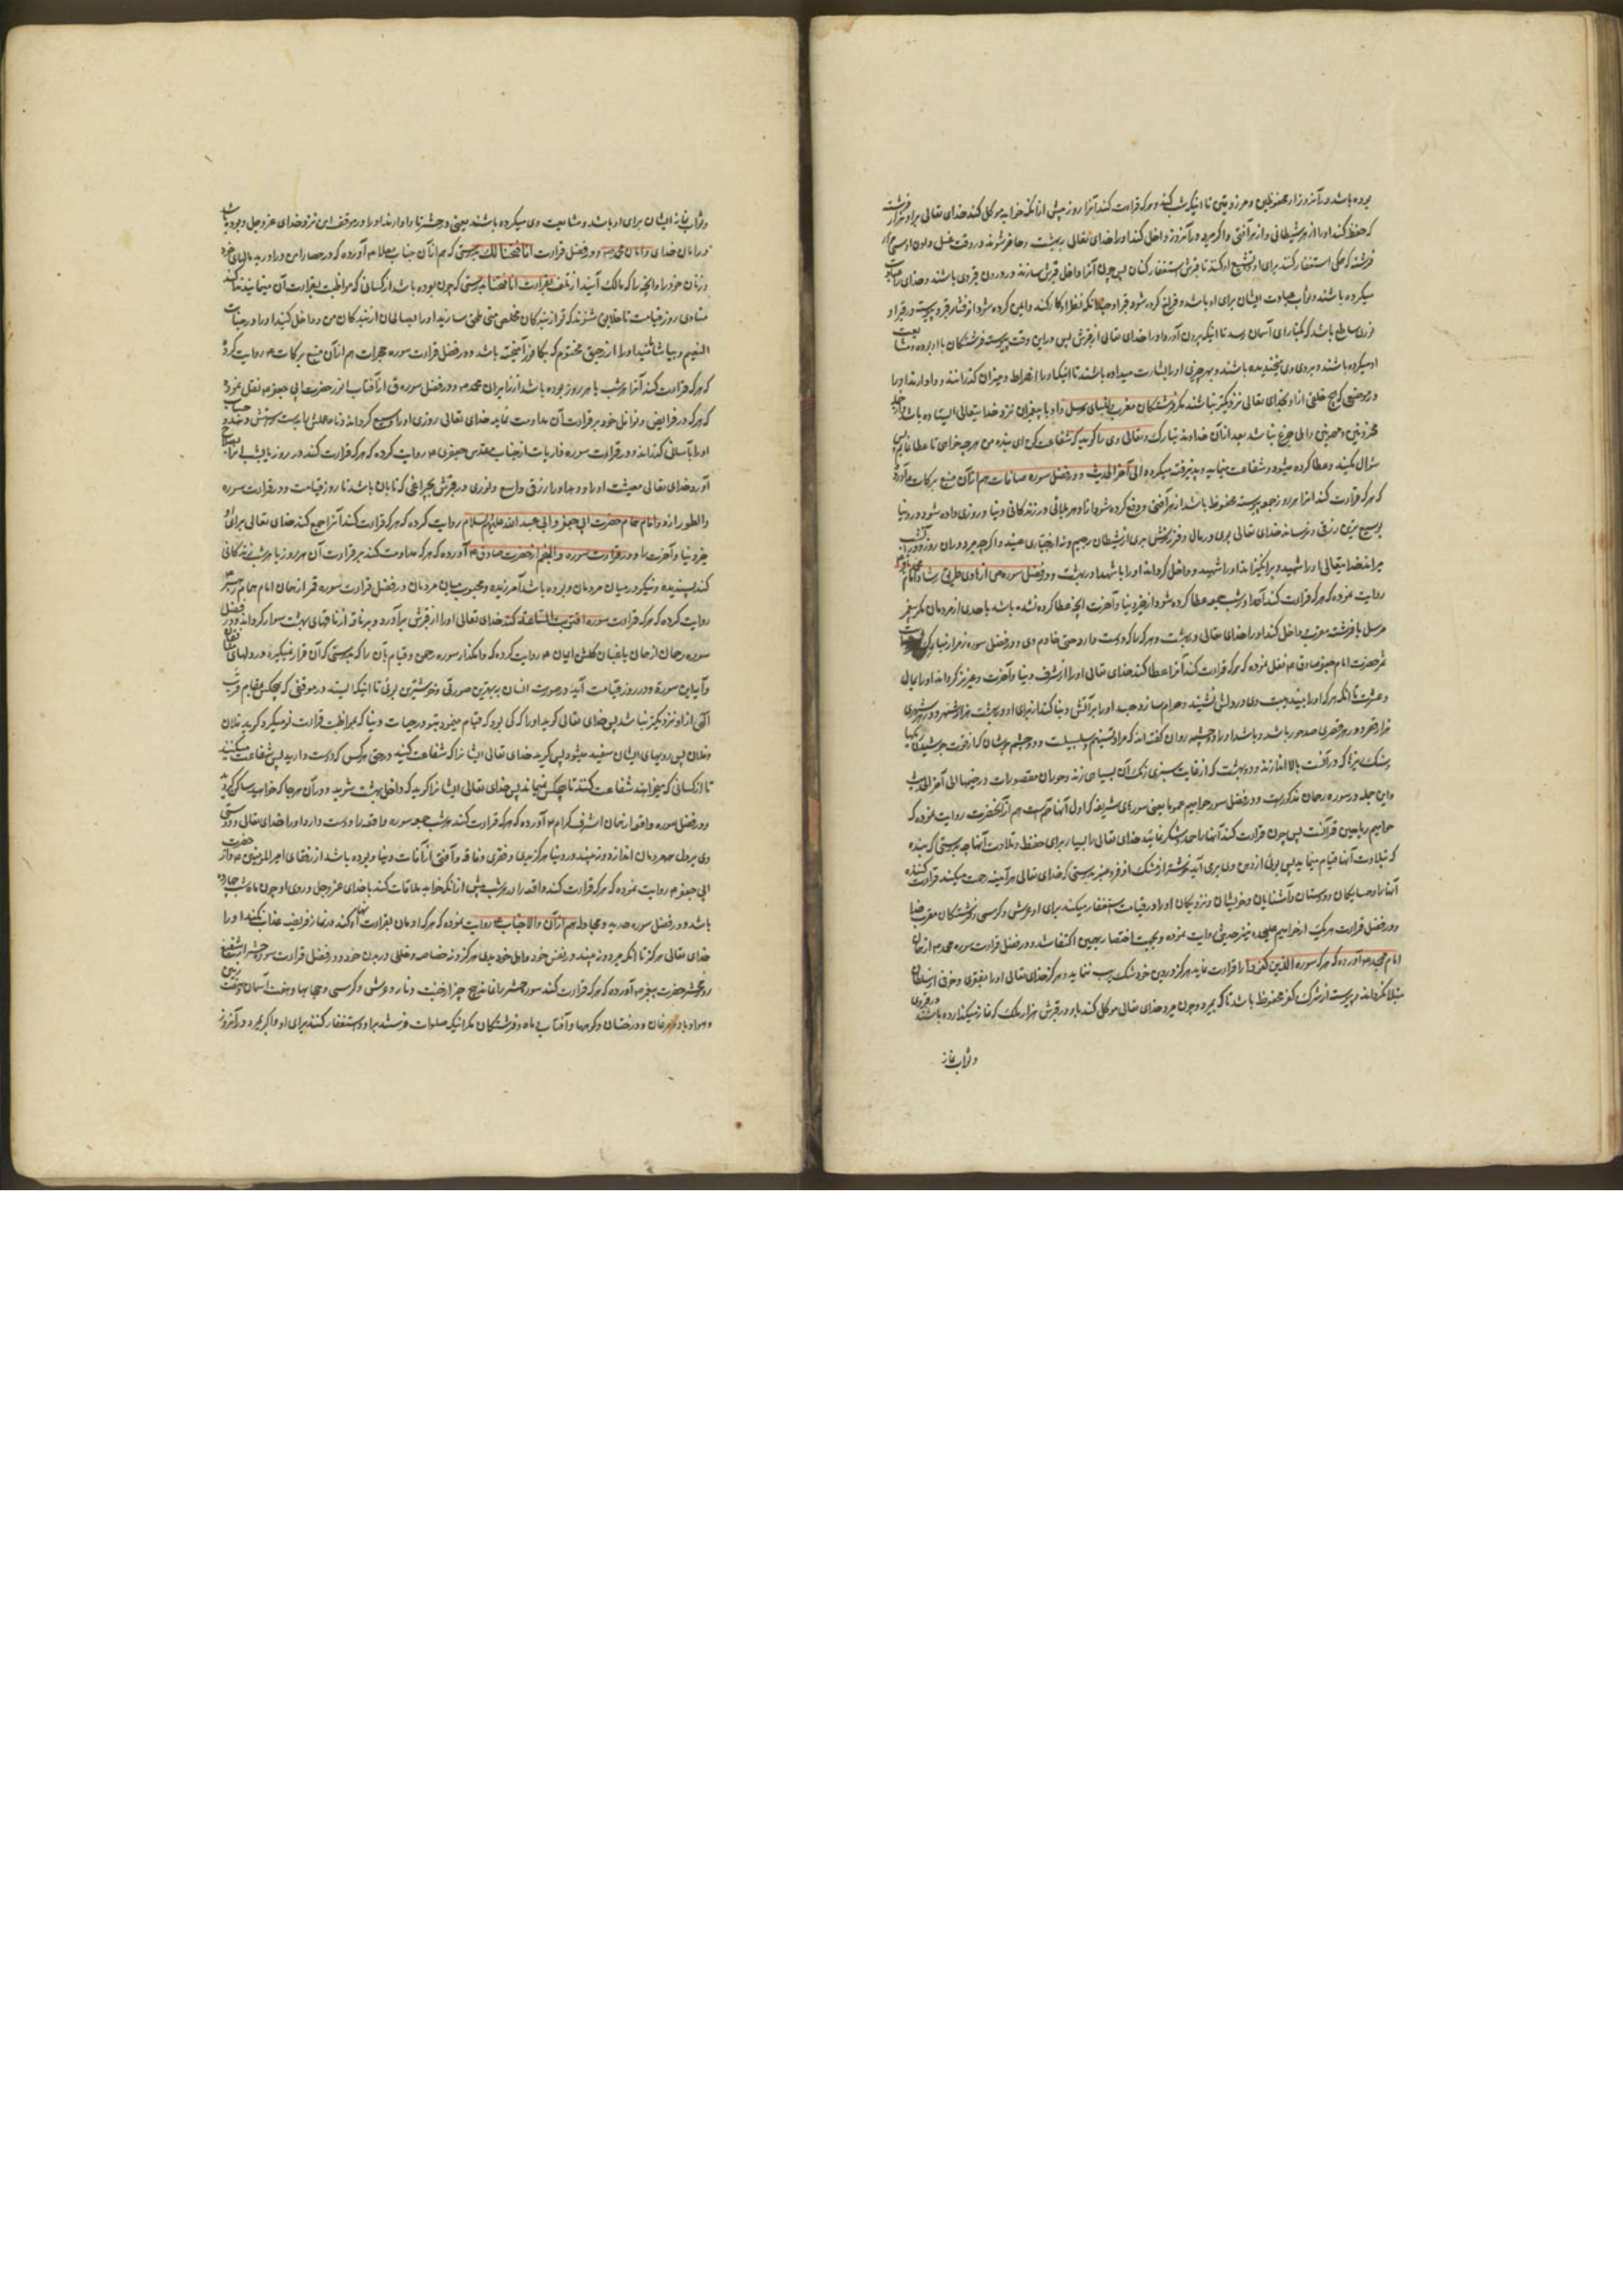 بوده باشد در آنروز از محفوظین و مرزوقین تا اینکه شب کند و هرکه قراءت کند آنرا روز پیش از آنکه خواب موکل کند خدای تعالی براو هزار فرشته
که حفظ کنند او را از هر شیطانی و از هر آفتی و اگر میرد در آنروز داخل کند او را خدای تعالی بهشت و حاضر شوند در وقت غسل دادن او سی هزار
فرشته که همگی استغفار کنند برای او و تشییع او کنند تا قبرش استغفار کنان پس چون آنرا داخل قبرش سازند در درون قبر وی باشند و خدای را عبادت
میکرده باشند و ثواب عبادت ایشان برای او باشد و فراخ کرده شود قبر او حدانکه نظر او کار کند و ایمن کرده شود از فشار قبر و پیوسته در قبر او
نوری ساطع باشد که بکنارای آسمان رسد تا اینکه بیرون آورد او را خدای تعالی از قبرش پس در این وقت پیوسته فرشتگان با او بوده و مشایعت
او میکرده باشند و بروی وی میخندیده باشند و بهر چیزی او را بشارت میداده باشند تا اینکه او را از صراط و میزان گذرانند و وادارند او را
در موضعی که هیچ خلقی از او بخدای تعالی نزدیکتر نباشند مگر فرشتگان مقرب و انبیای مرسل و او با پیغمبران نزد خدایتعالی ایستاده باشد
محزونین و مهمومین و اهل جزع نباشد بعد از آن خداوند تبارک و تعالی وی را گوید که شفاعت کن ای بنده من هرچه خواهی تا عطا نمایم پس
سؤال میکند و عطا کرده میشود و شفاعت مینماید و پذیرفته میگردد الی آخر الحدیث و در فضل سوره صافات هم از آن منبع برکات ع آورده
که هرکه قراءت کند آنرا هر روز جمعه پیوسته محفوظ باشد از هر آفتی و دفع کرده شود از او هر بلائی در زندگانی دنیا و روزی داده شود در دنیا
بوسیع ترین رزقی و نرساند خدای تعالی بوی در مال و فرزند و بدنش بدی از شیطان رجیم و نه از جباری عنید و اگر چه میرد در آن روز و در آن شب
میراند خدایتعالی او را شهید و برانگیزاند او را شهید و داخل گرداند او را با شهدا در بهشت و در فضل سوره ص از هادی طریق رشاد امام محمد باقر ع
روایت نموده که هرکه قراءت کند آنرا در شب جمعه عطا کرده شود از خیر دنیا و آخرت آنچه عطا کرده نشده باشد باحدی از مردمان مگر پیغمبر
مرسل یا فرشته مقرب و داخل کند او را خدای تعالی در بهشت و هرکه را که دوست دارد حتی خادم وی و در فضل سوره زمر از
حضرت امام جعفر صادق ع نقل نموده که هرکه قراءت کند آنرا عطا کند خدای تعالی او را از شرف دنیا و آخرت و عزیز گرداند او را بی مال
و عشیرت تا آنکه هرکه او را بیند هیبت وی در دلش نشیند و حرام سازد جسد او را بر آتش و بنا کند از برای او در بهشت هزار شهر و در هر شهری
هزار قصر و در هر قصری صد حور باشد و باشد او را دو چشمه روان
و این جمله در سوره رحمان مذکور است و در فضل سور حوامیم عموما یعنی سورهای شریفه که اول آنها حم است هم از آنحضرت روایت نموده که
حوامیم ریاحین قرآنست پس چون قراءت کنید آنها را حمد و شکر نمائید خدای تعالی را بسیار برای حفظ و تلاوت آنها چه بدرستی که بنده
که بتلاوت آنها قیام مینماید پس بوئی از دهن وی بیرون آید خوشتر از مشک اذفر و عنبر بدرستی که خدای تعالی هر آینه رحمت میکند قراءت کننده
آنها را و همسایگان و دوستان و آشنایان و خویشان و نزدیکان او را و در قیامت استغفار میکند برای او عرش و کرسی و فرشتگان مقرب خدا
و در فضل قراءت هر یک از حوامیم علیحده نیز حدیثی روایت نموده و بجهت اختصار بهمین اکتفا شد و در فضل قراءت سوره محمد ص از همان
امام ع آورده که هرکه سوره الذین کفروا را قراءت نماید هرگز در دین خود شک بهم نرساند و هرگز خدای تعالی او را بفقری و خوفی از سلطان
مبتلا نگرداند و پیوسته از شرک و کفر محفوظ باشد تا که بمیرد و چون میرد خدای تعالی موکل کند باو در قبرش هزار ملک که نماز میگذارده باشند در قبر وی
و ثواب نماز
و ثواب نماز ایشان برای او باشد و مشایعت وی میکرده باشند یعنی در حشر تا وادارند او را در موقف امن نزد خدای عزوجل و بوده باشد
در امان خدای و امان محمد ص و در فضل قراءت انا فتحنا لک هم از آن جناب ع آورده که در حصار امن درآورید مالهای خود
و زنان خود را و آنچه را که مالک آنید از تلف بقراءت انا فتحنا بدرستی که چون بوده باشد از کسانی که مواظبت بقراءت آن مینماید ندا کند
منادی روز قیامت تا خلایق شنوند که تو از بندگان مخلص منی ملحق سازید او را بصالحان از بندگان من و داخل کنید او را در جنات
النعیم و بیاشامانید او را از رحیق مختوم که بکافور آمیخته باشد و در فضل قراءت سوره حجرات هم از آن منبع برکات ع روایت کرده
که هرکه قراءت کند آنرا هر شب یا هر روز بوده باشد از زایران محمد ص و در فضل سوره ق از حضرت ابی جعفر ع نقل نموده
که هرکه در فرایض و نوافل خود بر قراءت آن مداومت نماید خدای تعالی روزی او را وسیع گرداند و نامه عملش بدست راستش دهد و حساب
او را بآسانی گذراند و در قراءت سوره ذاریات از جناب مقدس جعفری ع روایت کرده که هرکه قراءت کند در روز یا بشب باصلاح
آورد خدای تعالی معیشت او را و دهد او را رزقی واسع و نوری در قبرش بچراغی که تابان باشد تا روز قیامت و در قراءت سوره
والطور از دو امام همام حضرت ابی جعفر و ابی عبدالله علیهم السلام روایت کرده که هرکه قراءت کند آنرا جمع کند خدای تعالی برای او
خیر دنیا و آخرت را و در قراءت سوره والنجم از حضرت صادق ع آورده که هرکه مداومت کند بر قراءت آن هر روز یا هر شب زندگانی
کند پسندیده و نیکو در میان مردمان و بوده باشد آمرزیده و محبوب میان مردمان و در فضل قراءت سوره قمر از همان امام همام
روایت کرده که هرکه قراءت سوره اقتربت الساعة کند خدای تعالی او را از قبرش برآورد و بر ناقه از ناقهای بهشت سوار گرداند و در فضل
سوره رحمان از همان باغبان گلشن ایمان ع روایت کرده که وامگذارید سوره رحمن و قیام بآن را که بدرستی که آن قرار نمیگیرد در دلهای منافقان
و آید این سوره در روز قیامت در صورت انسان بهترین صورتی و خوشترین بوئی تا اینکه ایستد در موقفی که هیچکس بمقام قرب
الهی از او نزدیکتر نباشد پس خدای تعالی گوید او را که کی بود که قیام مینمود بتو در حیات دنیا که مواظبت قراءت تو میکرد گوید فلان
و فلان پس رویهای ایشان سفید میشود پس گوید خدای تعالی ایشان را که شفاعت کنید در حق هرکس که دوست دارید پس شفاعت میکنند
تا از کسانی که میخواهند شفاعت کنند تا هیچکس نمیماند پس خدای تعالی ایشان را گوید که داخل بهشت شوید و در آن هرجا که خواهید ساکن گردید
و در فضل سوره واقعه از همان اشرف کرام ع آورده که هرکه قراءت کند هر شب جمعه سوره واقعه را دوست دارد او را خدای تعالی و دوستی
وی بر دل همه مردمان اندازد و نبیند در دنیا هرگز بدی و فقری و فاقه و آفتی از آفات دنیا و بوده باشد از رفقای امیرالمؤمنین ع و از حضرت
ابی جعفر ع روایت نموده که هرکه قراءت کند واقعه را در هر شب پیش از آنکه خوابد ملاقات کند با خدای عزوجل و روی او چون ماه شب چهارده
باشد و در فضل سوره حدید و مجادله هم از آن والاجناب ع روایت نموده که هرکه ادمان بقراءت آنها کند در نماز فریضه عذاب نکند او را
خدای تعالی هرگز تا آنکه میرد و نبیند در نفس خود و اهل خود بدی هرگز و نه خصاصه و خللی در بدن خود و در فضل قراءت سوره حشر از شفیع
روز محشر حضرت پیغمبر ص آورده که هرکه قراءت کند سوره حشر را نماند هیچ چیز از جنت و نار و عرش و کرسی و حجابها و هفت آسمان و هفت زمین
و هوا و باد و مرغان و درختان و کوهها و آفتاب و ماه و فرشتگان مگر اینکه صلوات فرستند براو و استغفار کنند برای او و اگر بمیرد در آنروز